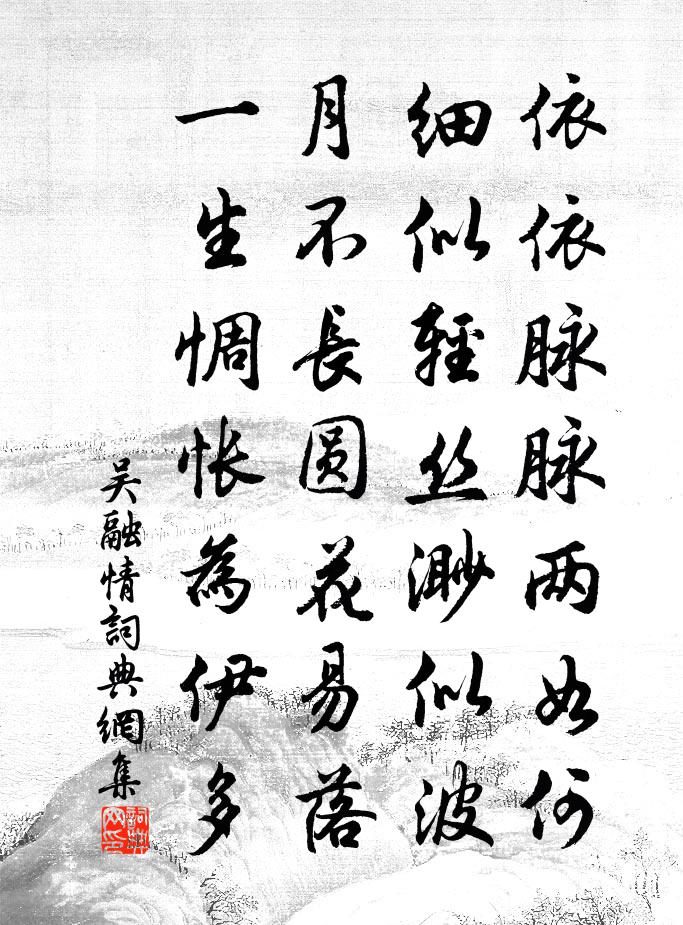 依依脉脉两如何
细似轻丝渺似波
月不長圆花易落
一生惆怅為伊多
吴融情詞典網集